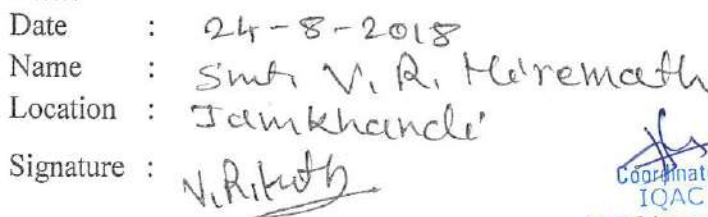 Date : 24-8-2018
Name : Smt. V. R. Hiremath
Location : Jamkhandi
Signature :
Coordinat
IQAC